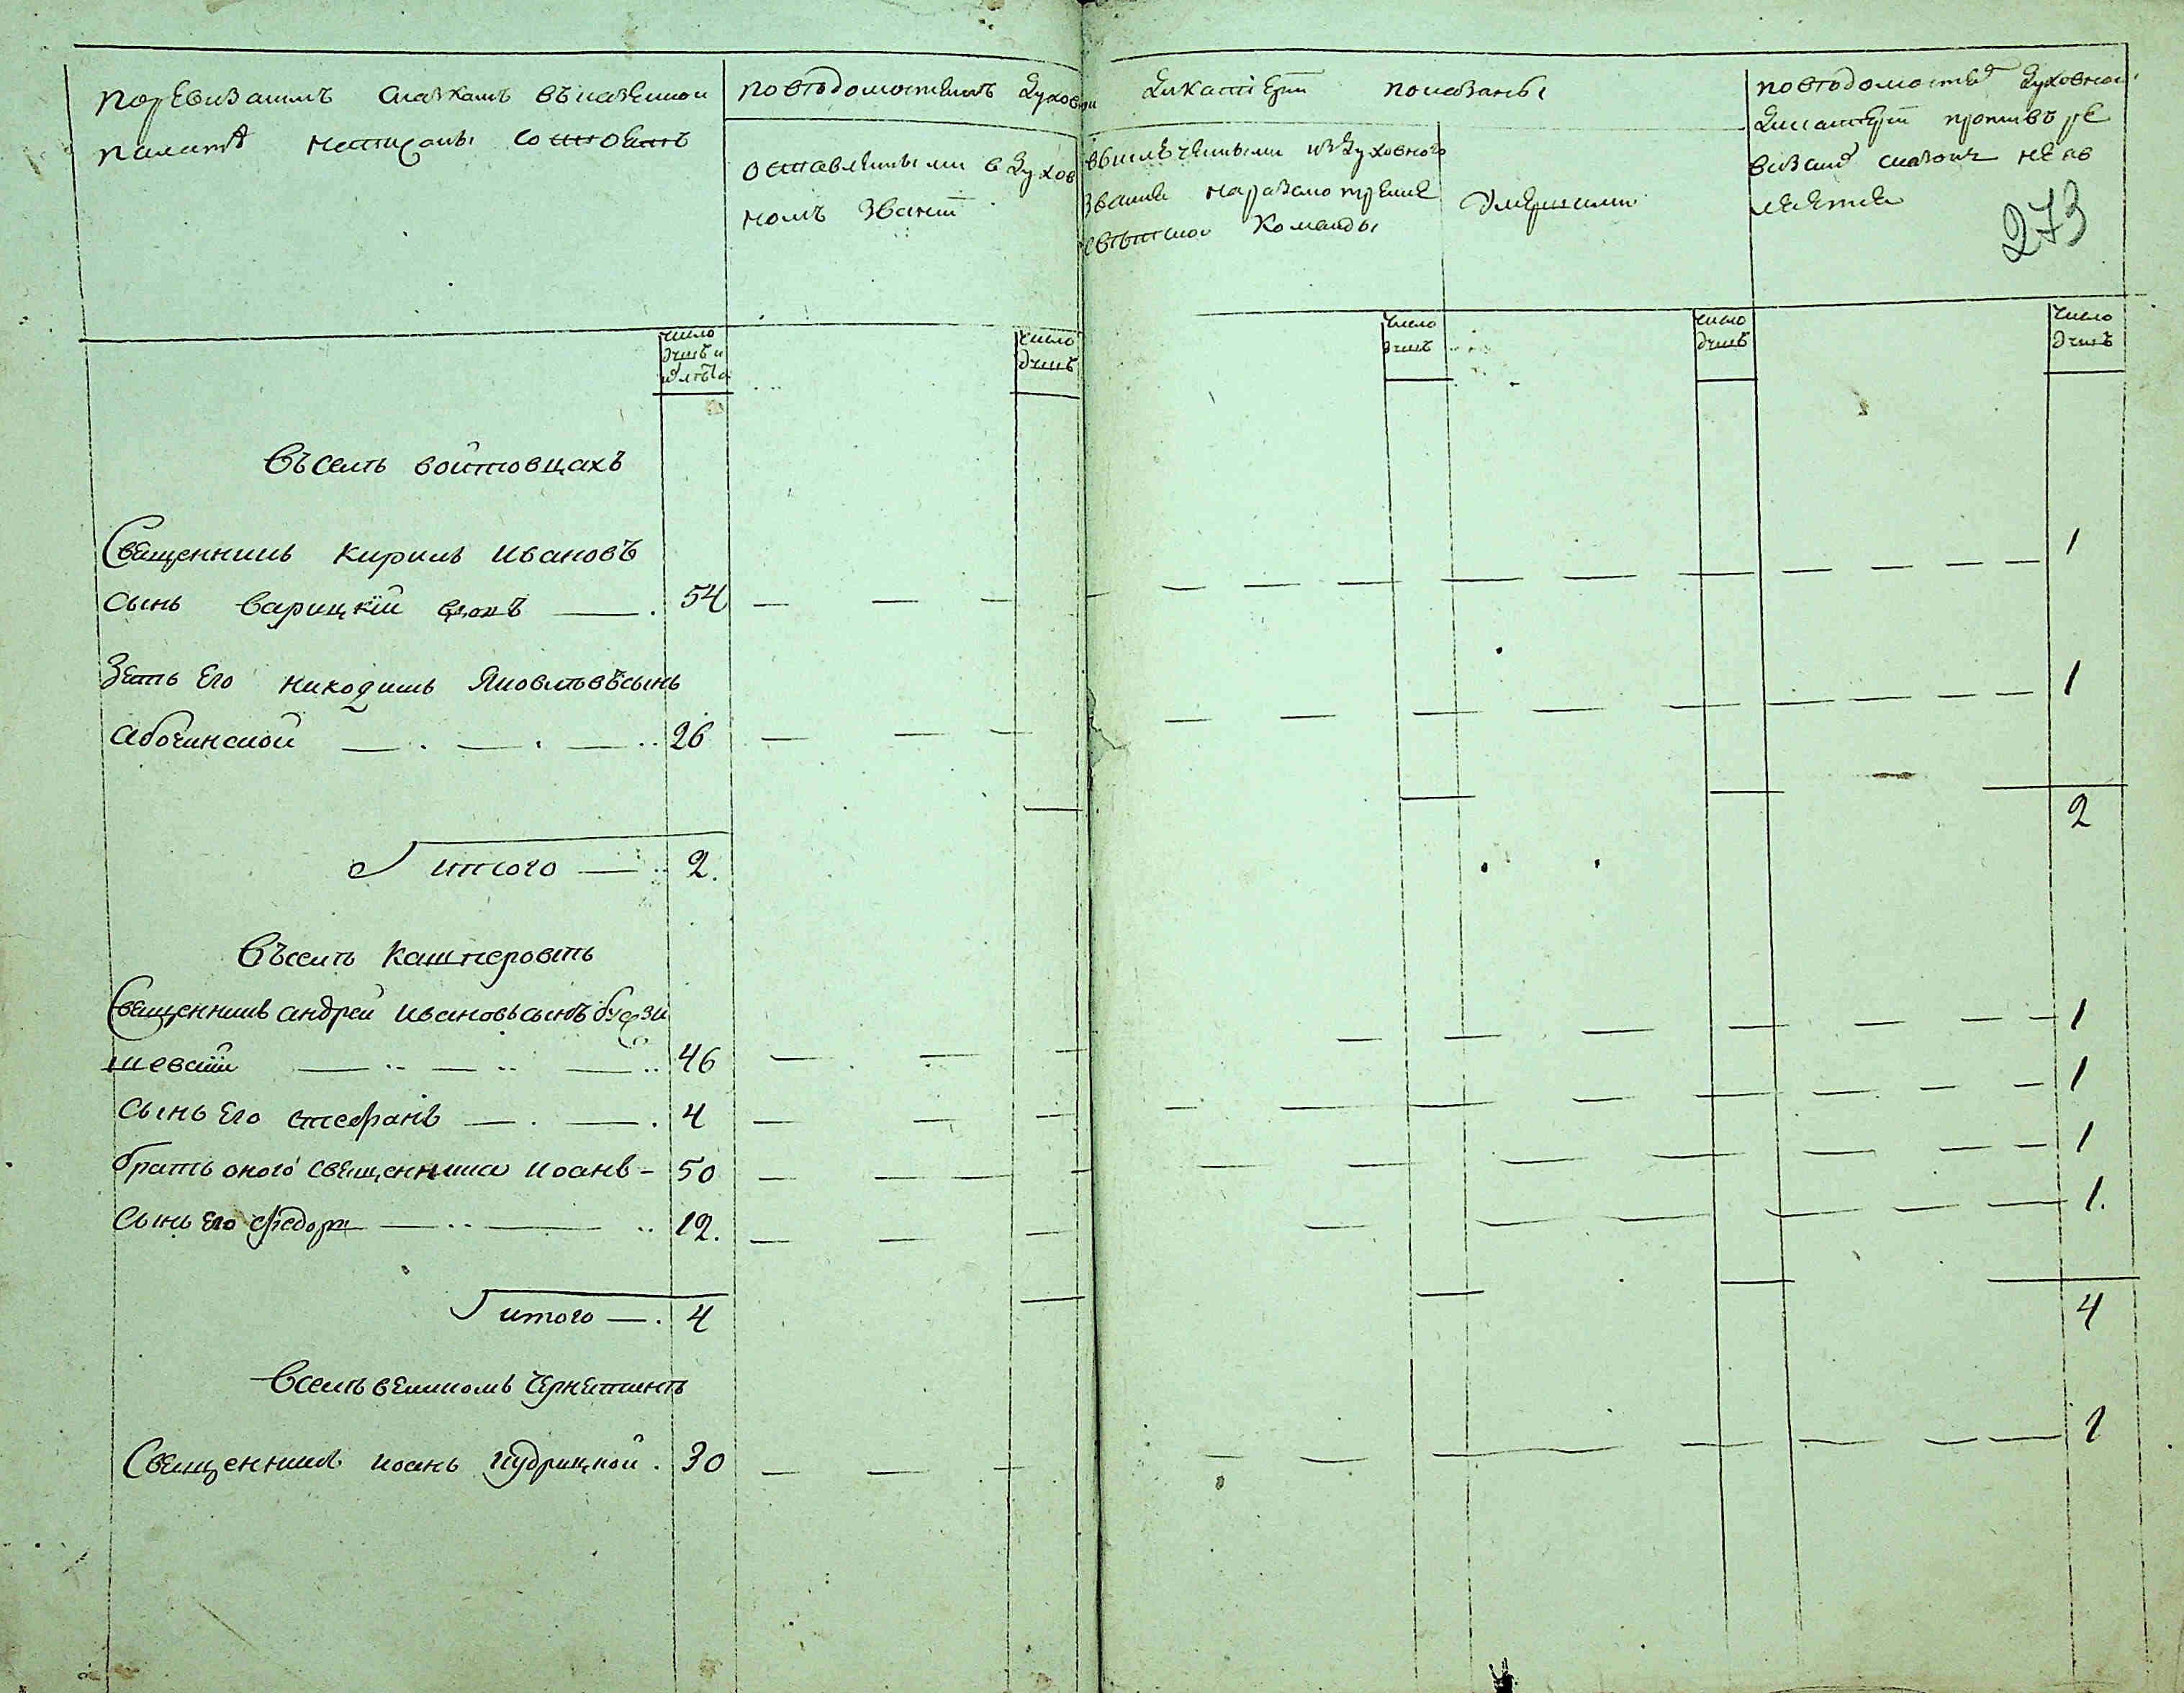 По ревизским сказкам в казенной
палате написаны
по ведомостям духовной дикастерии показаны
оставленными в духов
ном звании
выключенными из духовного
звания на разсмотрение
светской команды
умершими
по ведомостям духовной
дикастерии против ре
визских сказок не яв
ляется
273
число
душъ и
лѣта
число
душъ
число
душъ
число
душъ
число
душъ
въ селѣ войтовцахъ
Священникъ кирилъ Ивановъ 1
сынъ варицкїй вдовъ — . 54
Зеть его никодимъ Яковлевъ сынъ 1
абочинской — . — . — .. 26
2
итого — .. 2.
въ селѣ кашперовкѣ
Священникъ андрей Ивановъ сынъ 1
шевскїй — .. — .. — .. 46
сынъ его стефанъ — . — . 4 1
братъ оного священника иоанъ - 50 1
сынъ его федоръ — .. — .. 12. 1.
итого — . 4 4
в селѣ великомъ чернетинѣ
Священникъ иоанъ кудрицкой . 30 1